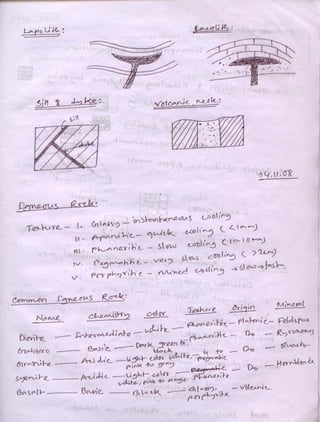 Lapolith:
Laccolith:
Sill & dyke:
Volcanic neck:
sill
dyke
04.11.08
Igneous Rock:
Texture - I. Glassy - instantaneous cooling
II. Aphanitic - quick cooling (<1mm)
III. Phaneritic - slow cooling (1-10mm)
IV. Pegmatitic - very slow cooling (>2cm)
V. Porphyritic - mixed cooling → slow → fast
Common Igneous Rock:
Name Chemistry Color Texture Origin Mineral
Diorite Intermediate - white Phaneritic - Plutonic - Feldspar
Gabbro Basic - Dark green to black Phaneritic Do - Pyroxene
Granite Acidic - Light color white, pink to gray Do
Syenite Acidic - Light color white, pink to orange Phaneritic Do - Hornblende
Basalt Basic - Black - Glassy, porphyritic - Volcanic